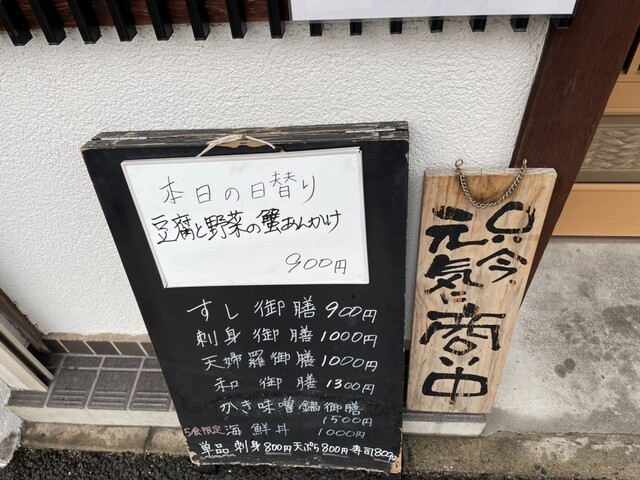 本日の日替り
豆腐と野菜の蟹あんかけ
900円
すし御膳 900円
刺身御膳 1000円
天婦羅御膳 1000円
和御膳 1300円
かき味噌鍋御膳
1500円
5食限定 海鮮丼 1000円
単品 刺身800円 天ぷら800円 寿司800円
只今
元気に
商い中